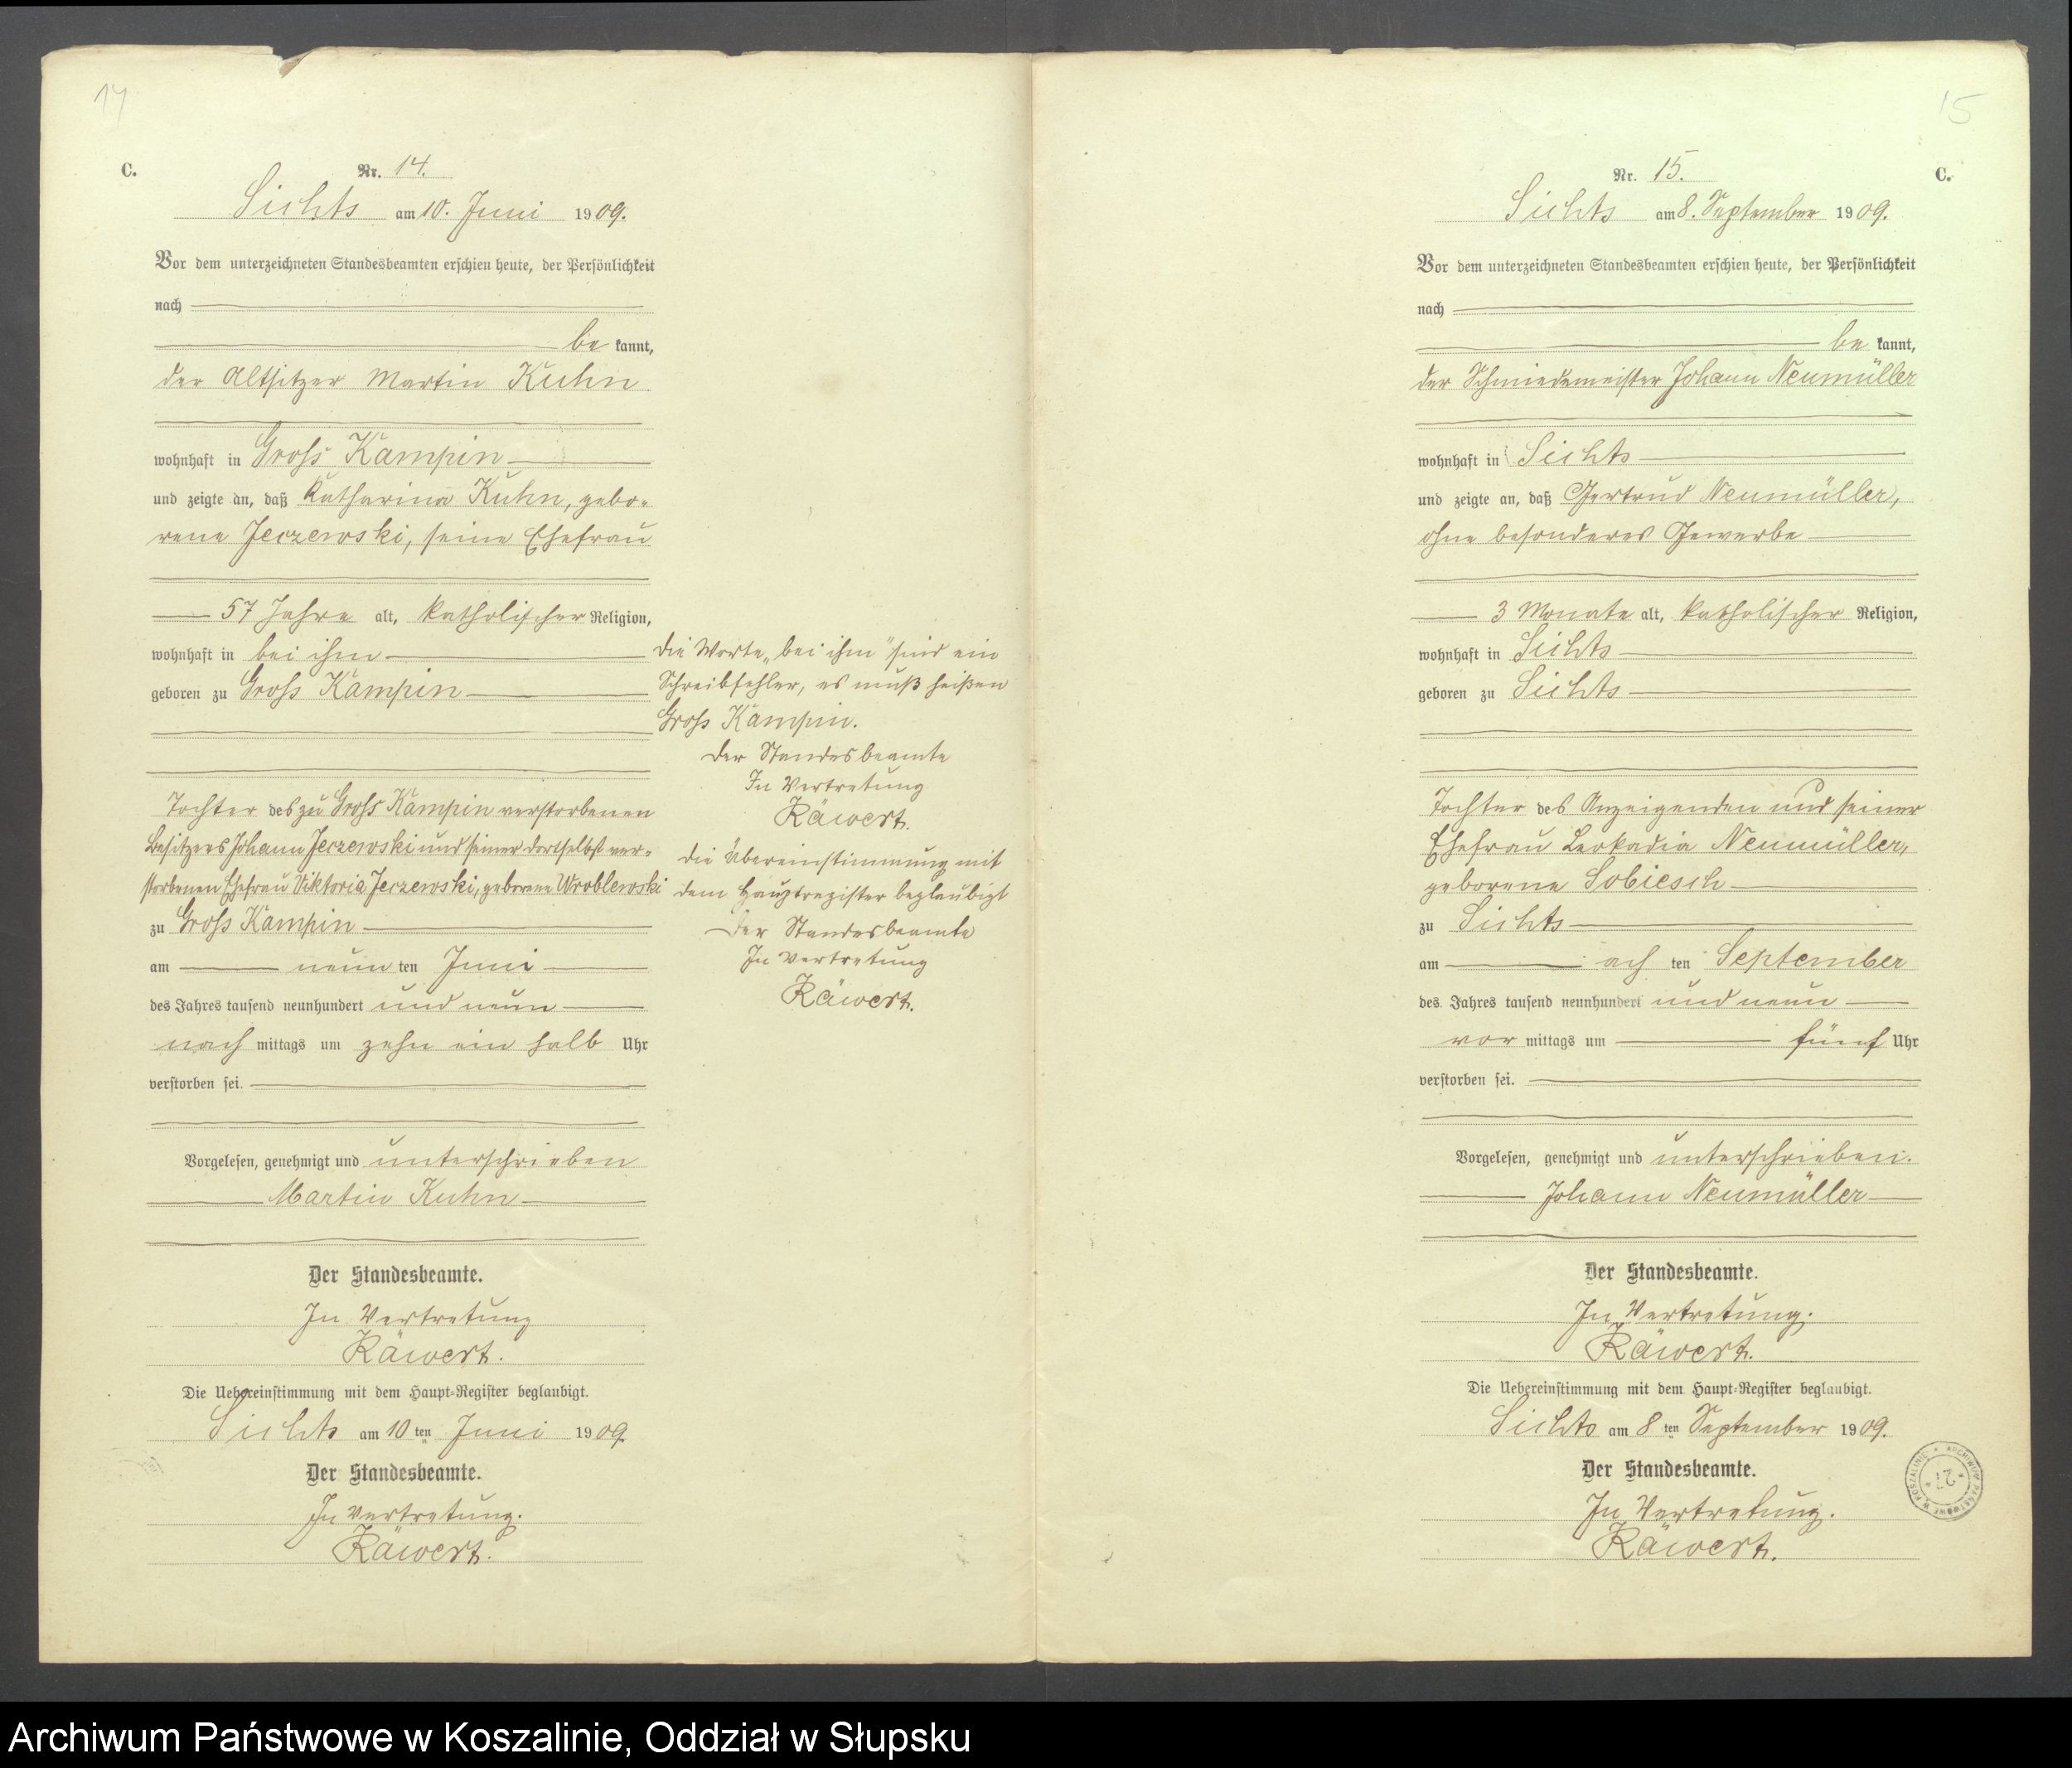 14
C.
Nr. 14.
Sichts am 10. Juni 1909.
Vor dem unterzeichneten Standesbeamten erschien heute, der Persönlichkeit
nach
be kannt,
der Altsitzer Martin Kuhn
wohnhaft in Gross Kampin
und zeigte an, daß Katharina Kuhn, gebo-
rene Jeczewski, seine Ehefrau
57 Jahre alt, katholischer Religion,
wohnhaft in bei ihm
geboren zu Gross Kampin
Tochter des zu Gross Kampin verstorbenen
Besitzers Johann Jeczewski und seiner dortselbst ver-
storbenen Ehefrau Viktoria Jeczewski, geborene Wroblewski
zu Gross Kampin
am neun ten Juni
des Jahres tausend neunhundert und neun
nach mittags um zehn ein halb Uhr
verstorben sei.
Vorgelesen, genehmigt und unterschrieben
Martin Kuhn
Der Standesbeamte.
In Vertretung
Räwert.
Die Uebereinstimmung mit dem Haupt-Register beglaubigt.
Sichts am 10 ten Juni 1909.
Der Standesbeamte.
In Vertretung.
Räwert.
Die Worte „bei ihm" sind ein
Schreibfehler, es muß heißen
Gross Kampin.
Der Standesbeamte
In Vertretung
Räwert.
Die Übereinstimmung mit
dem Hauptregister beglaubigt
Der Standesbeamte
In Vertretung
Räwert.
15
Nr. 15.
C.
Sichts am 8. September 1909.
Vor dem unterzeichneten Standesbeamten erschien heute, der Persönlichkeit
nach
be kannt,
der Schmiedemeister Johann Neumüller
wohnhaft in Sichts
und zeigte an, daß Gertrud Neumüller,
ohne besonderes Gewerbe
3 Monate alt, katholischer Religion,
wohnhaft in Sichts
geboren zu Sichts
Tochter des Anzeigenden und seiner
Ehefrau Leokadia Neumüller,
geborene Sobiesch
zu Sichts
am ach ten September
des Jahres tausend neunhundert und neun
vor mittags um fünf Uhr
verstorben sei.
Vorgelesen, genehmigt und unterschrieben.
Johann Neumüller
Der Standesbeamte.
In Vertretung.
Räwert.
Die Uebereinstimmung mit dem Haupt-Register beglaubigt.
Sichts am 8 ten September 1909.
Der Standesbeamte.
In Vertretung.
Räwert.
ARCHIWUM PAŃSTWOWE W KOSZALINIE
27
Archiwum Państwowe w Koszalinie, Oddział w Słupsku